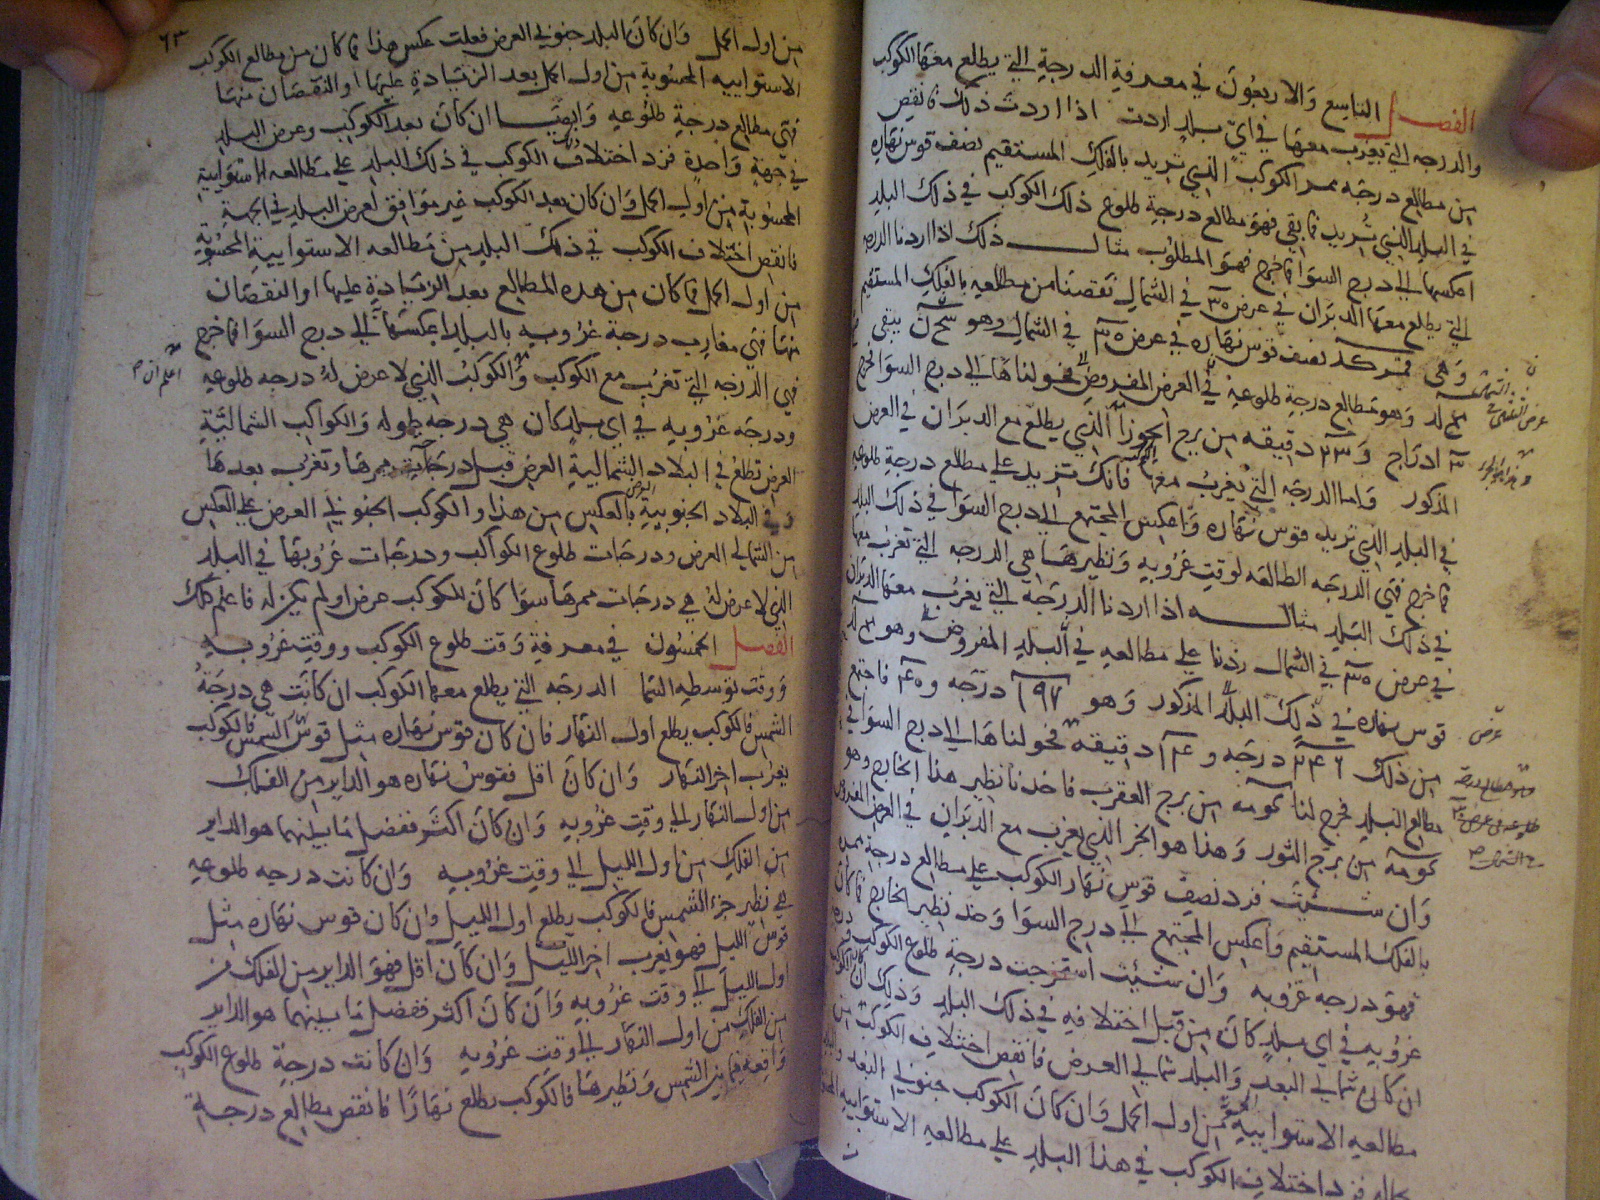 الفصل التاسع والاربعون في معرفة الدرجة التي يطلع معها الكوكب
والدرجه التي يغرب معها في اي بلد اردت اذا اردت ذلك فانقص
من مطالع درجه ممر الكوكب الذي تريد بالفلك المستقيم نصف قوس نهاره
في البلد الذي تريد فما بقي فهو مطالع درجة طلوع ذلك الكوكب في ذلك البلد
اعكسها الي درج السوا فما خرج فهو المطلوب مثال ذلك اذا اردنا الدرجه
التي يطلع معها الدبران في عرض في الشمال نقصنا من مطالعه بالفلك المستقيم
وهي نصف قوس نهاره في عرض في الشمال وهو يبقي
وهو مطالع درجة طلوعه في العرض المفروض فحولناها الي درج السوا فخرج
ادراج و دقيقه من برج الجوزا الذي يطلع مع الدبران في العرض
المذكور واما الدرجه التي يغرب معها الكوكب فانك تزيد علي مطالع درجة طلوعه
في البلد الذي تريد قوس نهاره واعكس المجتمع الي درج السوا في ذلك البلد
فما خرج فهي الدرجه الطالعه لوقت غروبه ونظيرها هي الدرجه التي تغرب معها
في ذلك البلد مثاله اذا اردنا الدرجه التي يغرب معها الدبران
في عرض في الشمال زدنا علي مطالعه في البلد المفروض وهو
قوس نهاره في ذلك البلد المذكور وهو درجه و فاجتمع
من ذلك درجه و دقيقه فحولناها الي درج السوا في
مطالع البلد فخرج لنا من برج العقرب فاخذنا نظير هذا الخارج وهو
من برج الثور وهذا هو الجز الذي يغرب مع الدبران في العرض المفروض
وان شيت فزد نصف قوس نهار الكوكب علي مطالع درجة ممره
بالفلك المستقيم واعكس المجتمع الي درج السوا وخذ نظير الخارج فما كان
فهو درجه غروبه وان شيت استخرجت درجة طلوع الكوكب
غروبه في اي بلد كان من قبل اختلافه في ذلك البلد وذلك ان
ان كان شمالي البعد والبلد شمالي العرض فانقص اختلاف الكوكب من
مطالعه الاستوايية من اول الحمل وان كان الكوكب جنوبي البعد
فزد اختلاف الكوكب في هذا البلد علي مطالعه الاستوايية
عرض
٦٣
من اول الحمل وان كان البلد جنوبي العرض فعلت عكس هذا فما كان من مطالع الكوكب
الاستواييه المحسوبة من اول الحمل بعد الزيادة عليها او النقصان منها
فهي مطالع درجة طلوعه وايضا ان كان بعد الكوكب وعرض البلد
في جهة واحدة فزد اختلاف الكوكب في ذلك البلد علي مطالعه الاستوايية
المحسوبة من اول الحمل وان كان بعد الكوكب غير موافق لعرض البلد في الجهة
فانقص اختلاف الكوكب في ذلك البلد من مطالعه الاستوايية المحسوبة
من اول الحمل فما كان من هذه المطالع بعد الزيادة عليها او النقصان
منها فهي مغارب درجة غروبه بالبلد اعكسها الي درج السوا فما خرج
فهي الدرجه التي تغرب مع الكوكب والكوكب الذي لا عرض له درجه طلوعه
اعلم ان
ودرجه غروبه في اي بلد كان هي درجه طوله والكواكب الشمالية
العرض تطلع في البلاد الشمالية العرض قبل درجات ممرها وتغرب بعدها
وفي البلاد الجنوبية العرض بالعكس من هذا والكوكب الجنوبي العرض علي العكس
من الشمالي العرض ودرجات طلوع الكواكب ودرجات غروبها في البلد
الذي لا عرض له هي درجات ممرها سوا كان للكوكب عرض او لم يكن له فاعلم ذلك
الفصل الخمسون في معرفة وقت طلوع الكوكب ووقت غروبه
ووقت توسطه السما الدرجه التي يطلع معها الكوكب ان كانت هي درجة
الشمس فالكوكب يطلع اول النهار فان كان قوس نهاره مثل قوس الشمس فالكوكب
يغرب اخر النهار وان كان اقل فقوس نهاره هو الداير من الفلك
من اول النهار الي وقت غروبه وان كان اكثر ففضل ما بينهما هو الداير
من الفلك من اول الليل الي وقت غروبه وان كانت درجه طلوعه
هي نظير جزء الشمس فالكوكب يطلع اول الليل وان كان قوس نهاره مثل
قوس الليل فهو يغرب اخر الليل وان كان اقل فهو الداير من الفلك من
اول الليل الي وقت غروبه وان كان اكثر ففضل ما بينهما هو الداير
من الفلك من اول النهار الي وقت غروبه وان كانت درجة طلوع الكوكب
واقعة فيما بين الشمس ونظيرها فالكوكب يطلع نهارًا فانقص مطالع درجة